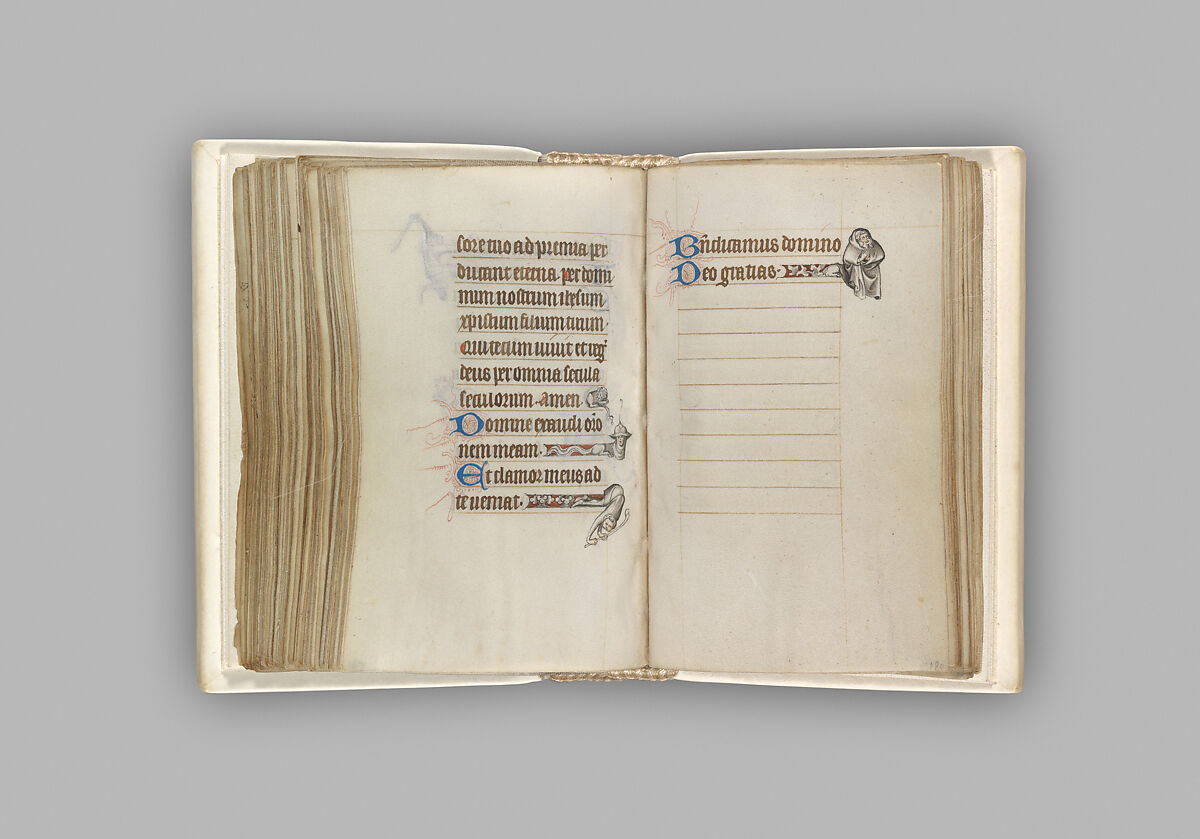 sore tuo ad premia per
ducant eterna. per domi
num nostrum ihesum
xpistum filium tuum.
Qui tecum uiuit et reg
deus per omnia secula
seculorum. amen
Domine exaudi orio
nem meam.
Et clamor meus ad
te ueniat.
Bndicamus domino
Deo gratias.